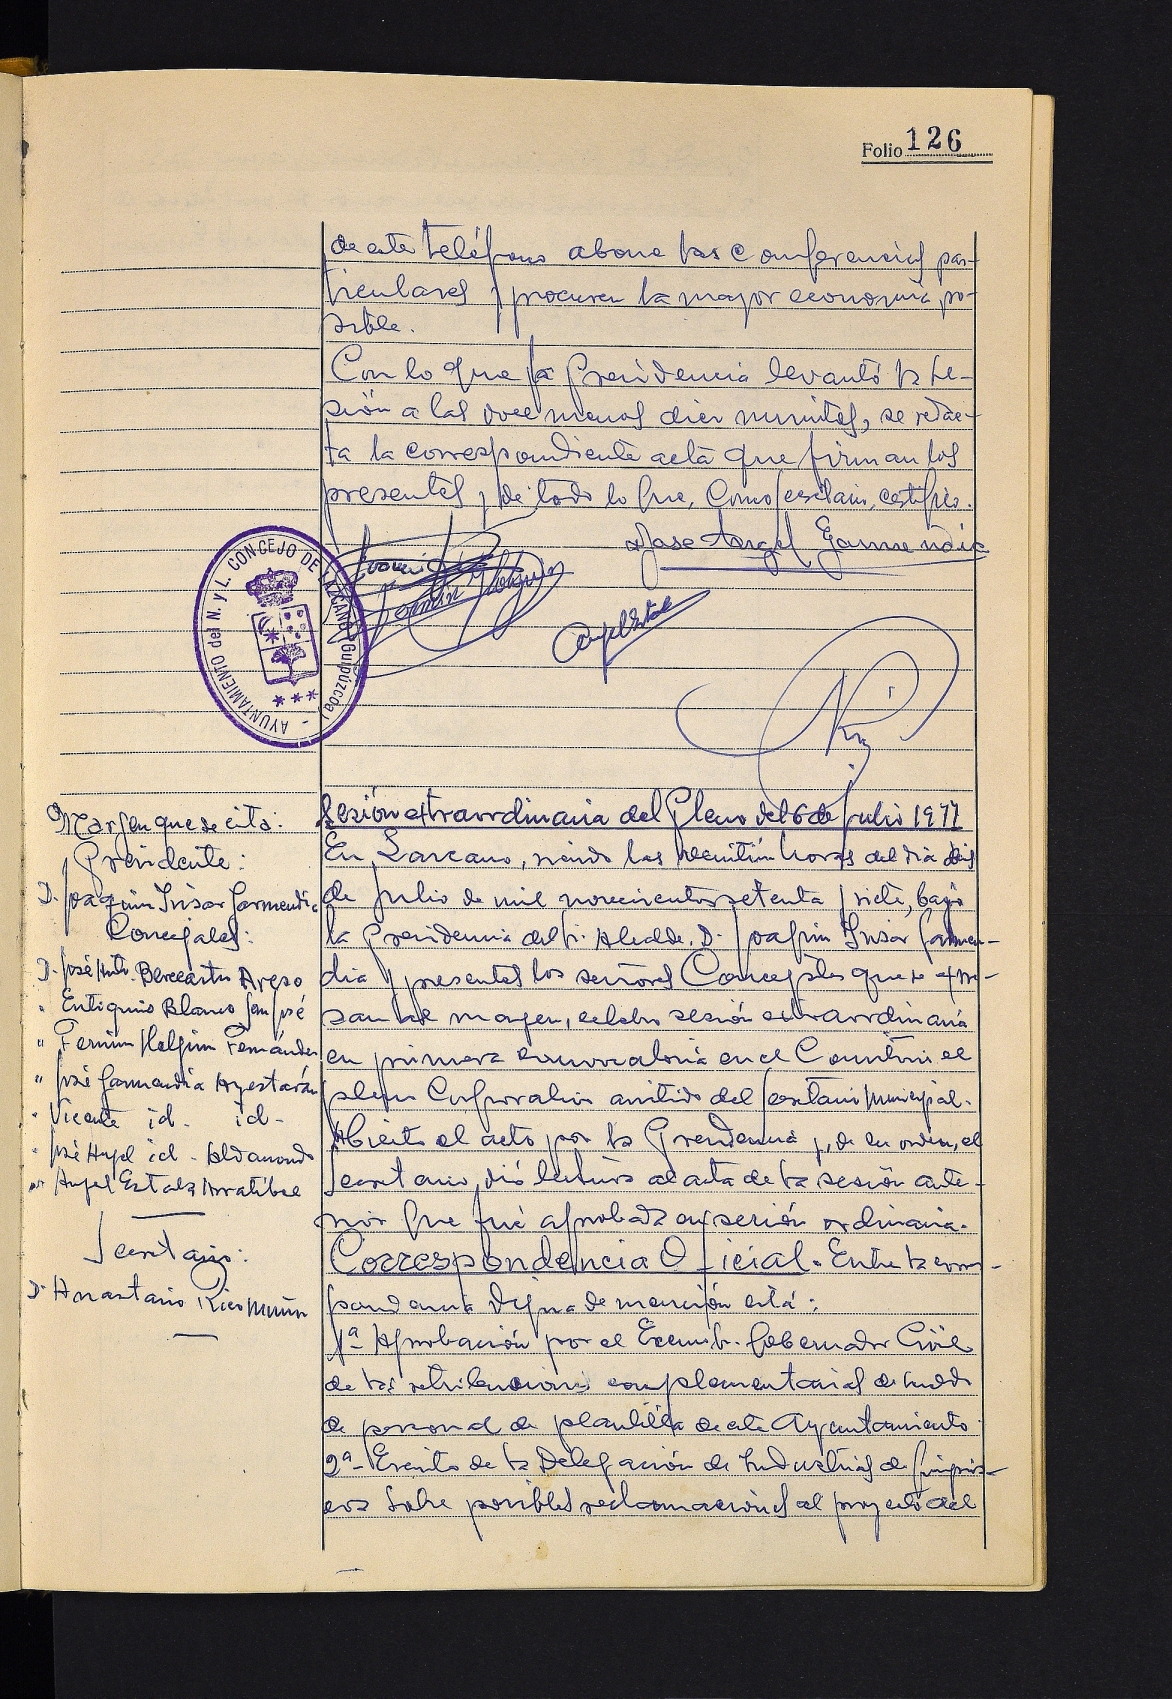 Folio 126
de este teléfono abone las conferencias par-
ticulares y procuren la mayor economía po-
sible.
Con lo que la Presidencia levantó la se-
sión a las doce menos diez minutos, se redac-
ta la correspondiente acta que firman los
presentes, de todo lo que, como Secretario, certifico.
Jose Angel Garmendia
Fermín Holguin
Angel Estala
AYUNTAMIENTO del N. y L. CONCEJO DE LAZCANO (Guipúzcoa)
Margen que se cita:
Presidente:
D. Joaquin Irisar Garmendia
Concejales:
D. José Anto. Bereciartu Areso
" Eutiquino Blanco San José
" Fermin Holguin Fernández
" José Garmendia Ayestarán
" Vicente id. id.
" José Angel id. Aldanondo
" Angel Estala Arratibel
Secretario:
D. Anastasio Rico Muñoz
Sesión extraordinaria del Pleno del 6 de Julio 1977
En Lazcano, siendo las veintiún horas del dia seis
de julio de mil novecientos setenta y siete, bajo
la Presidencia del Sr. Alcalde, D. Joaquin Irisar Garmen-
dia y presentes los señores Concejales que se expre-
san al margen, celebró sesión extraordinaria
en primera convocatoria en el Consistorio el
pleno Corporativo asistido del Secretario Municipal.
Abierto el acto por la Presidencia y, de su orden, el
Secretario, dió lectura al acta de la sesión ante-
rior que fué aprobada en sesión ordinaria.
Correspondencia Oficial. Entre la corres-
pondencia digna de mención está:
1ª Aprobación por el Excmo. Sr. Gobernador Civil
de las retribuciones complementarias de sueldo
de personal de plantilla de este Ayuntamiento
2ª Escrito de la Delegación de Industrias de Guipúz-
coa sobre posibles reclamaciones al proyecto del